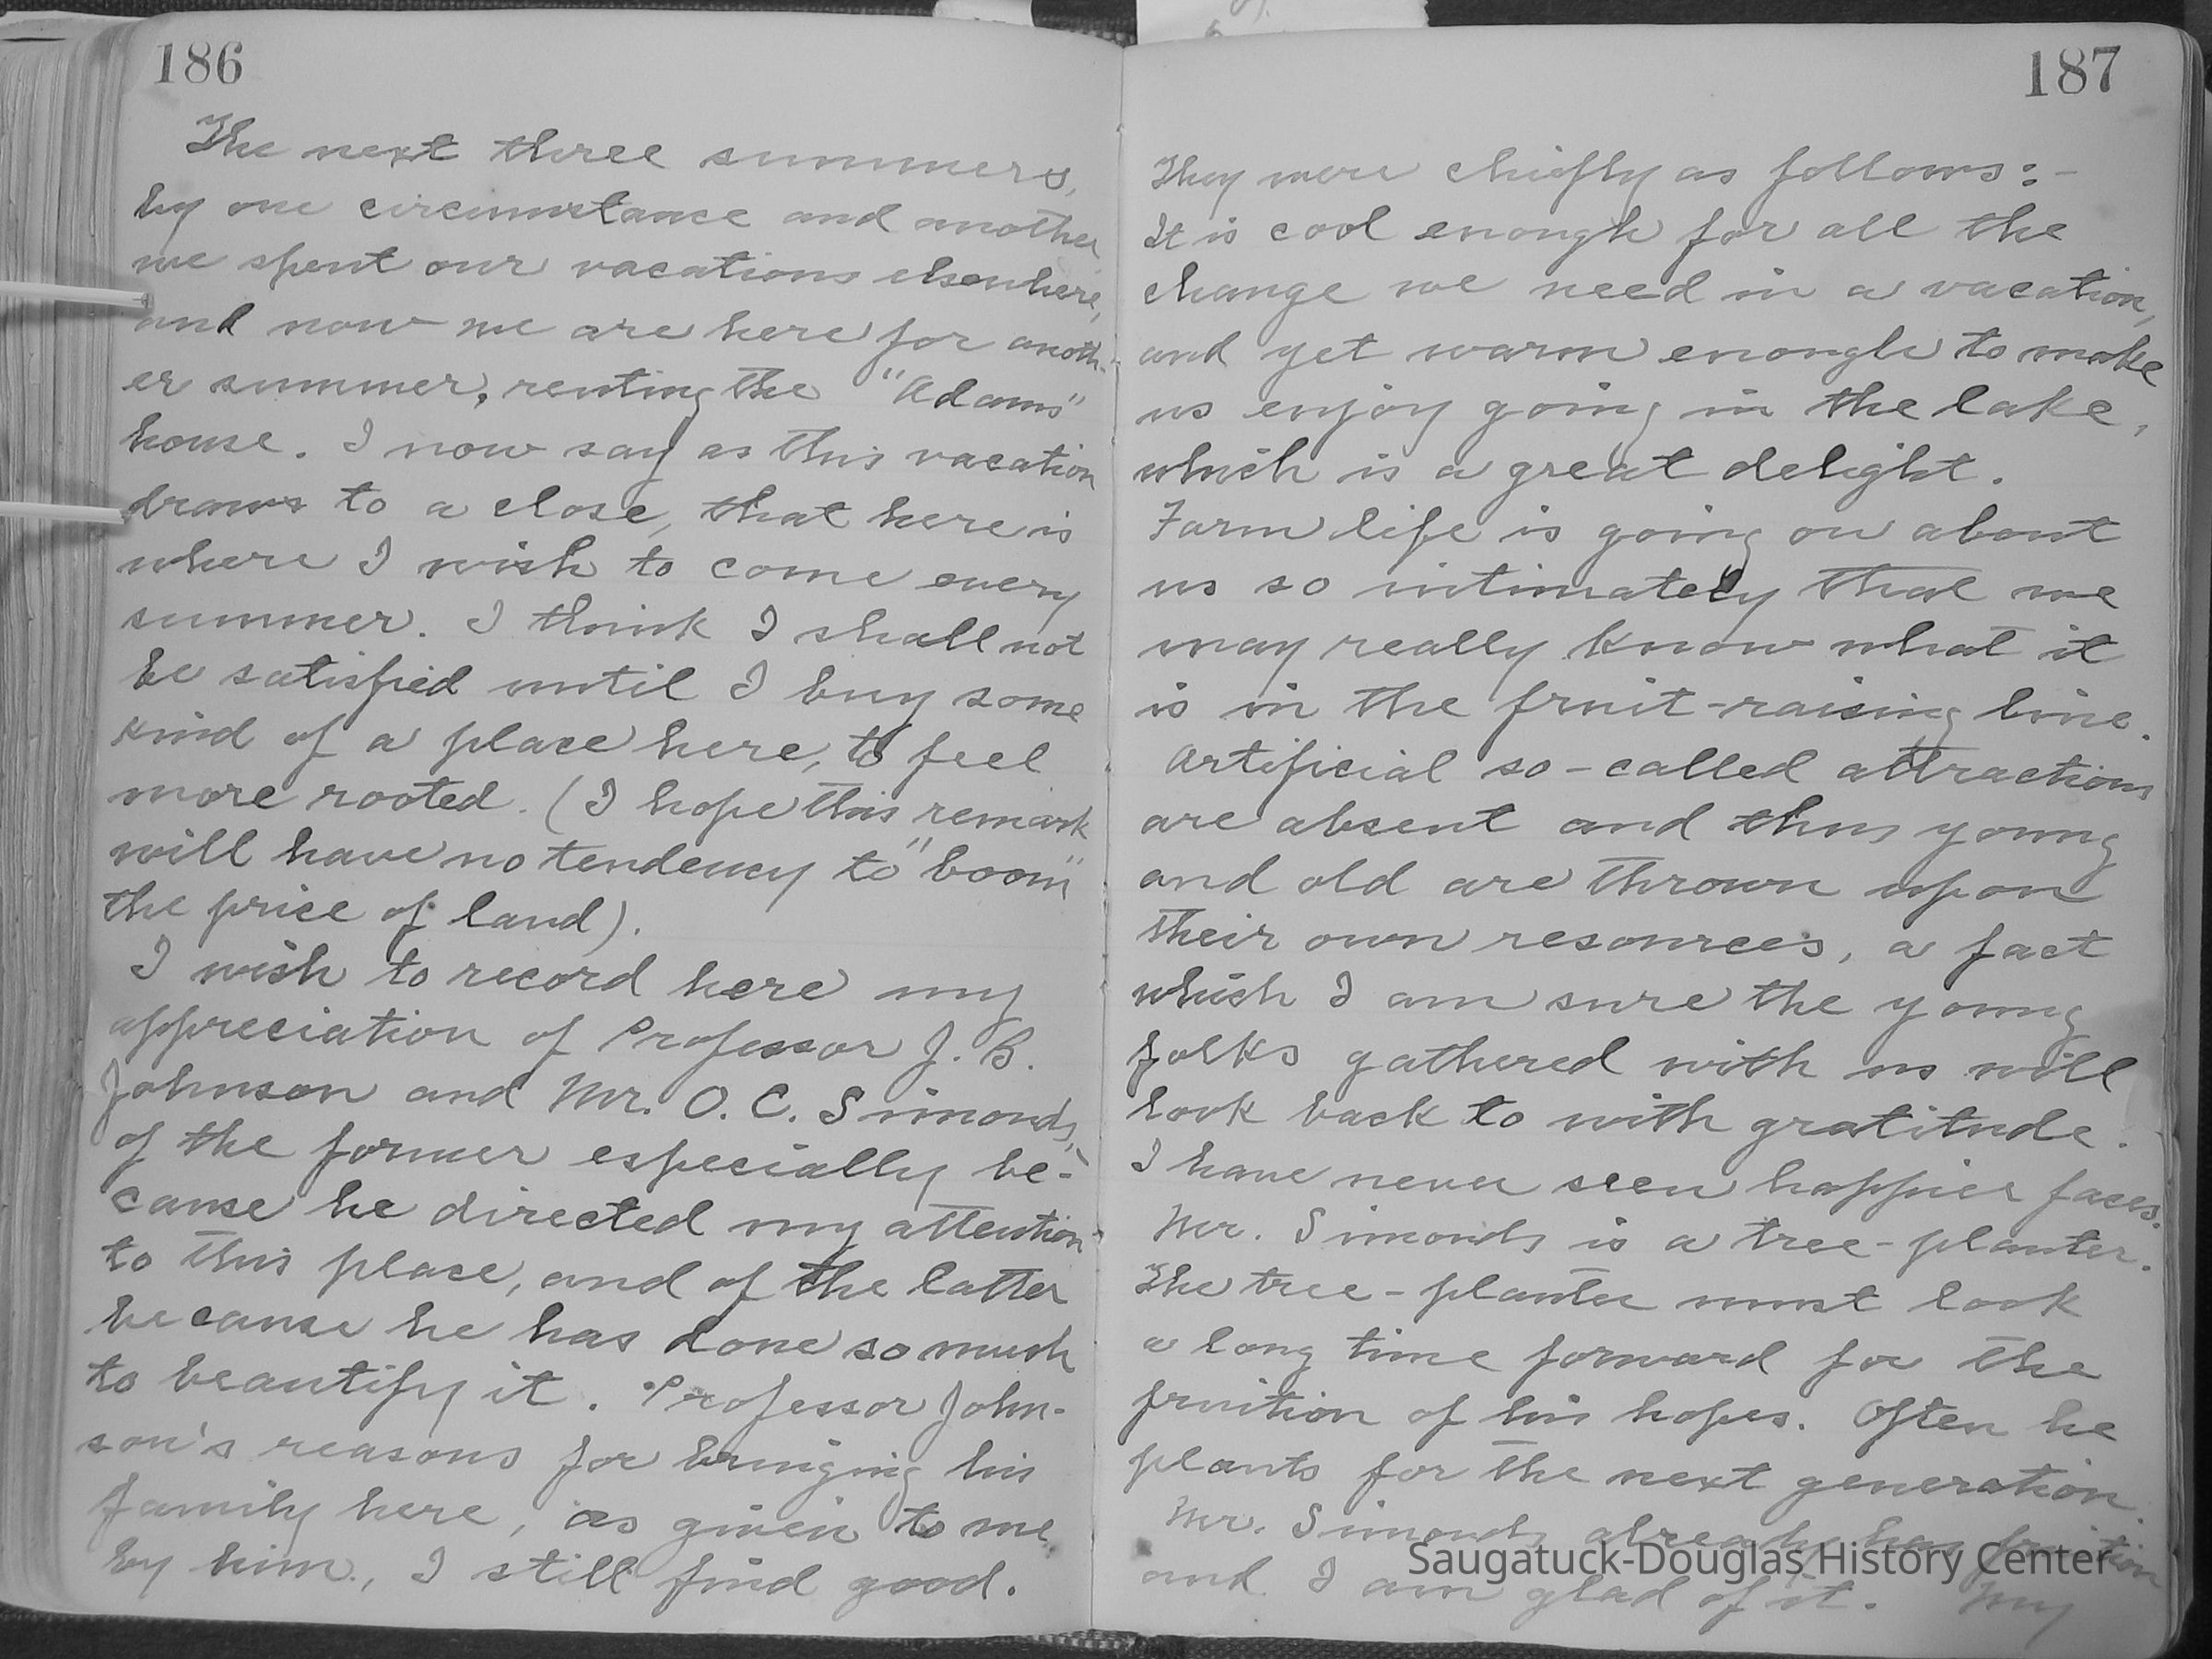 186
The next three summers,
by one circumstance and another
we spent our vacations elsewhere,
and now we are here for anoth-
er summer, renting the "Adams"
house. I now say as this vacation
draws to a close, that here is
where I wish to come every
summer. I think I shall not
be satisfied until I buy some
kind of a place here, to feel
more rooted. (I hope this remark
will have no tendency to "boom"
the price of land).
I wish to record here my
appreciation of Professor J. B.
Johnson and Mr. O. C. Simonds,
of the former especially be-
cause he directed my attention
to this place, and of the latter
because he has done so much
to beautify it. Professor John-
son's reasons for bringing his
family here, as given to me
by him, I still find good.
187
They were chiefly as follows:-
It is cool enough for all the
change we need in a vacation,
and yet warm enough to make
us enjoy going in the lake,
which is a great delight.
Farm life is going on about
us so intimately that we
may really know what it
is in the fruit-raising line.
Artificial so-called attractions
are absent and thus young
and old are thrown upon
their own resources, a fact
which I am sure the young
folks gathered with us will
look back to with gratitude.
I have never seen happier faces.
Mr. Simonds is a tree-planter.
The tree-planter must look
a long time forward for the
fruition of his hopes. Often he
plants for the next generation.
Mr. Simonds already has fruition
and I am glad of it. My
Saugatuck-Douglas History Center